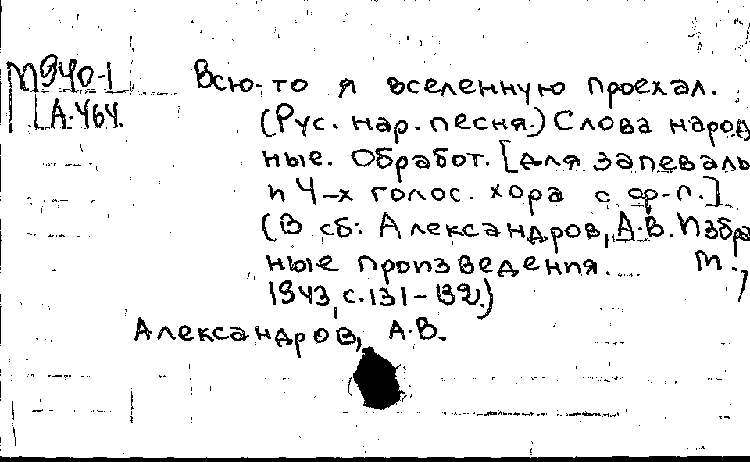 М940-1
А.464.
Всю-то я вселенную проехал.
(Рус. нар. песня.) Слова народ
ные. Обработ. [для запеваль
и 4-х голос. хора с фр-п.]
(В сб: Александров, А.В. Избра
ные произведения. М.,
1943, с. 131-132.)
Александров, А.В.